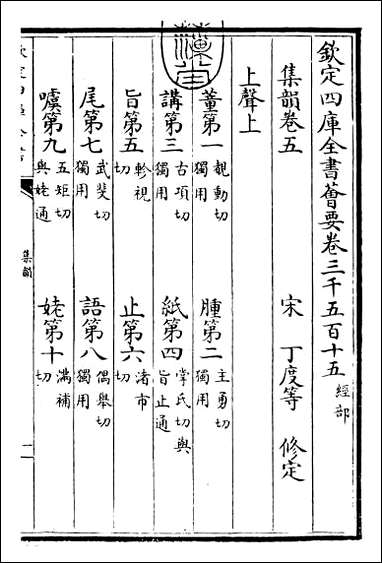 欽定四庫全書薈要卷三千五百十五 經部
集韻卷五 宋 丁度等 修定
上聲上
董第一 覩動切 獨用 腫第二 主勇切 獨用
講第三 古項切 獨用 紙第四 掌氏切與 旨止通
旨第五 軫視切 止第六 渚市切
尾第七 武斐切 獨用 語第八 偶舉切 獨用
噳第九 五矩切 與姥通 姥第十 滿補切
集韻